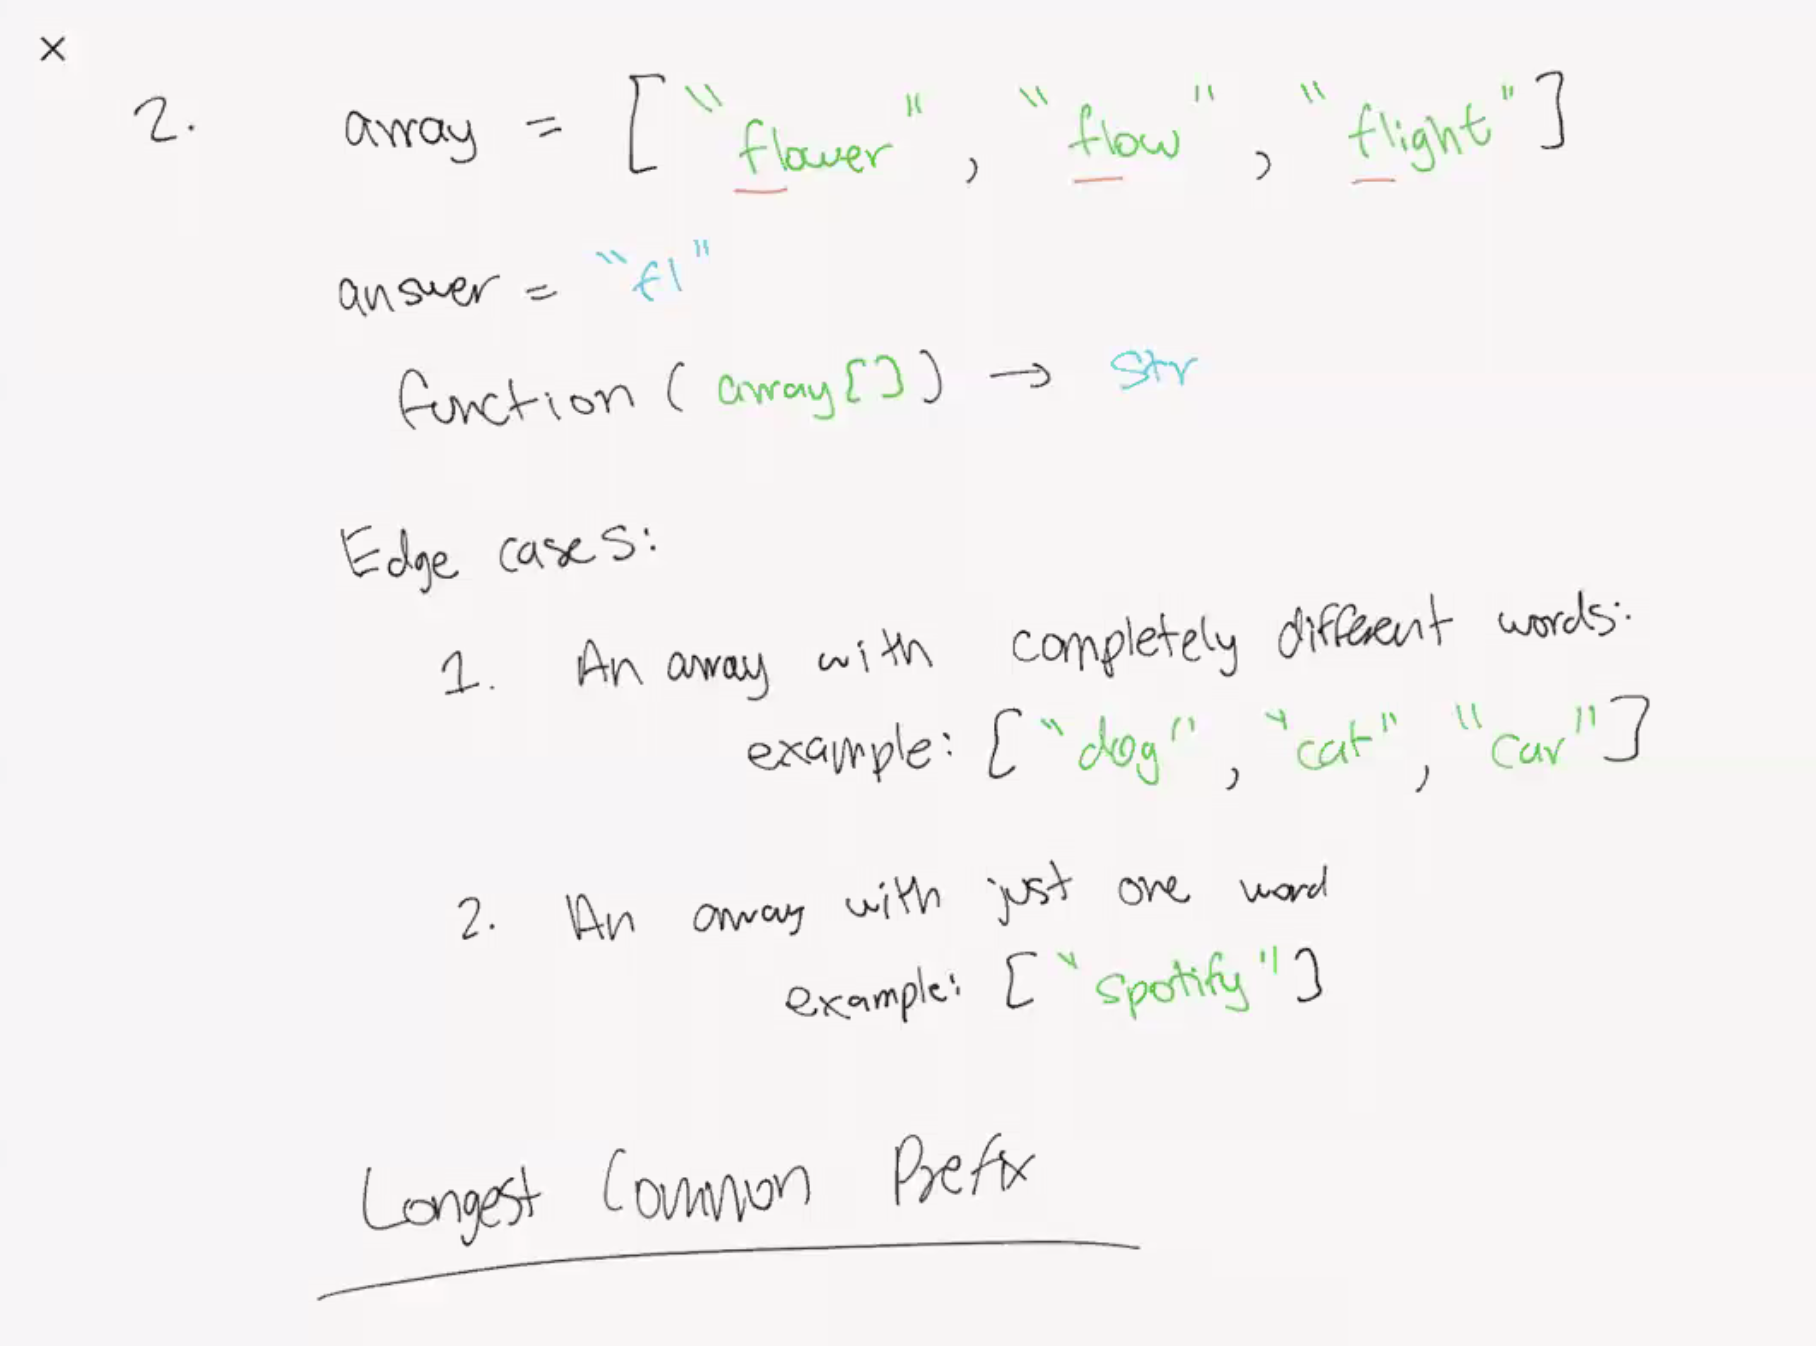 2. array = ["flower", "flow", "flight"]
answer = "fl"
function (array[]) → Str
Edge cases:
1. An array with completely different words:
example: ["dog", "cat", "car"]
2. An array with just one word
example: ["spotify"]
Longest Common Prefix